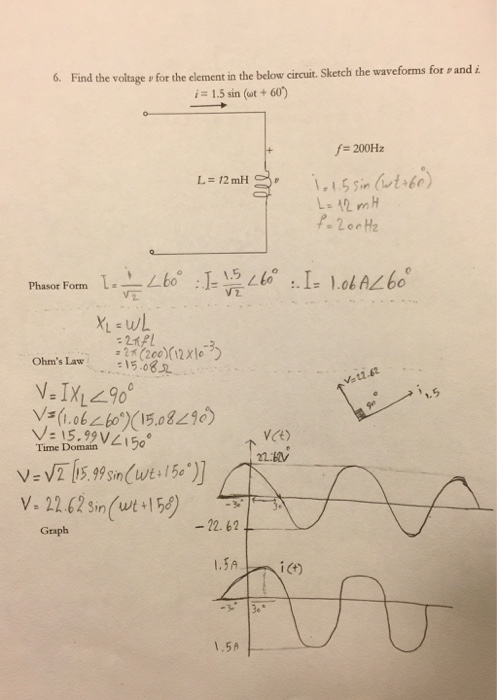 6. Find the voltage v for the element in the below circuit. Sketch the waveforms for v and i.
i = 1.5 sin (ωt + 60°)
+
f = 200Hz
L = 12 mH
v
i = 1.5 sin (ωt+60°)
L = 12 mH
f = 200Hz
Phasor Form I = i/√2 ∠60° ∴ I = 1.5/√2 ∠60° ∴ I = 1.06 A∠60°
XL = ωL
= 2πfL
= 2π(200)(12×10⁻³)
Ohm's Law = 15.08Ω
V = IXL∠90°
V = (1.06∠60°)(15.08∠90°)
V = 15.99V∠150°
V=22.62
90°
i 1.5
Time Domain
V = √2 [15.99 sin(ωt+150°)]
V = 22.62 sin(ωt+150°)
Graph
V(t)
22.62V
-30°
30°
-22.62
1.5A
i(t)
-30°
30°
1.5A